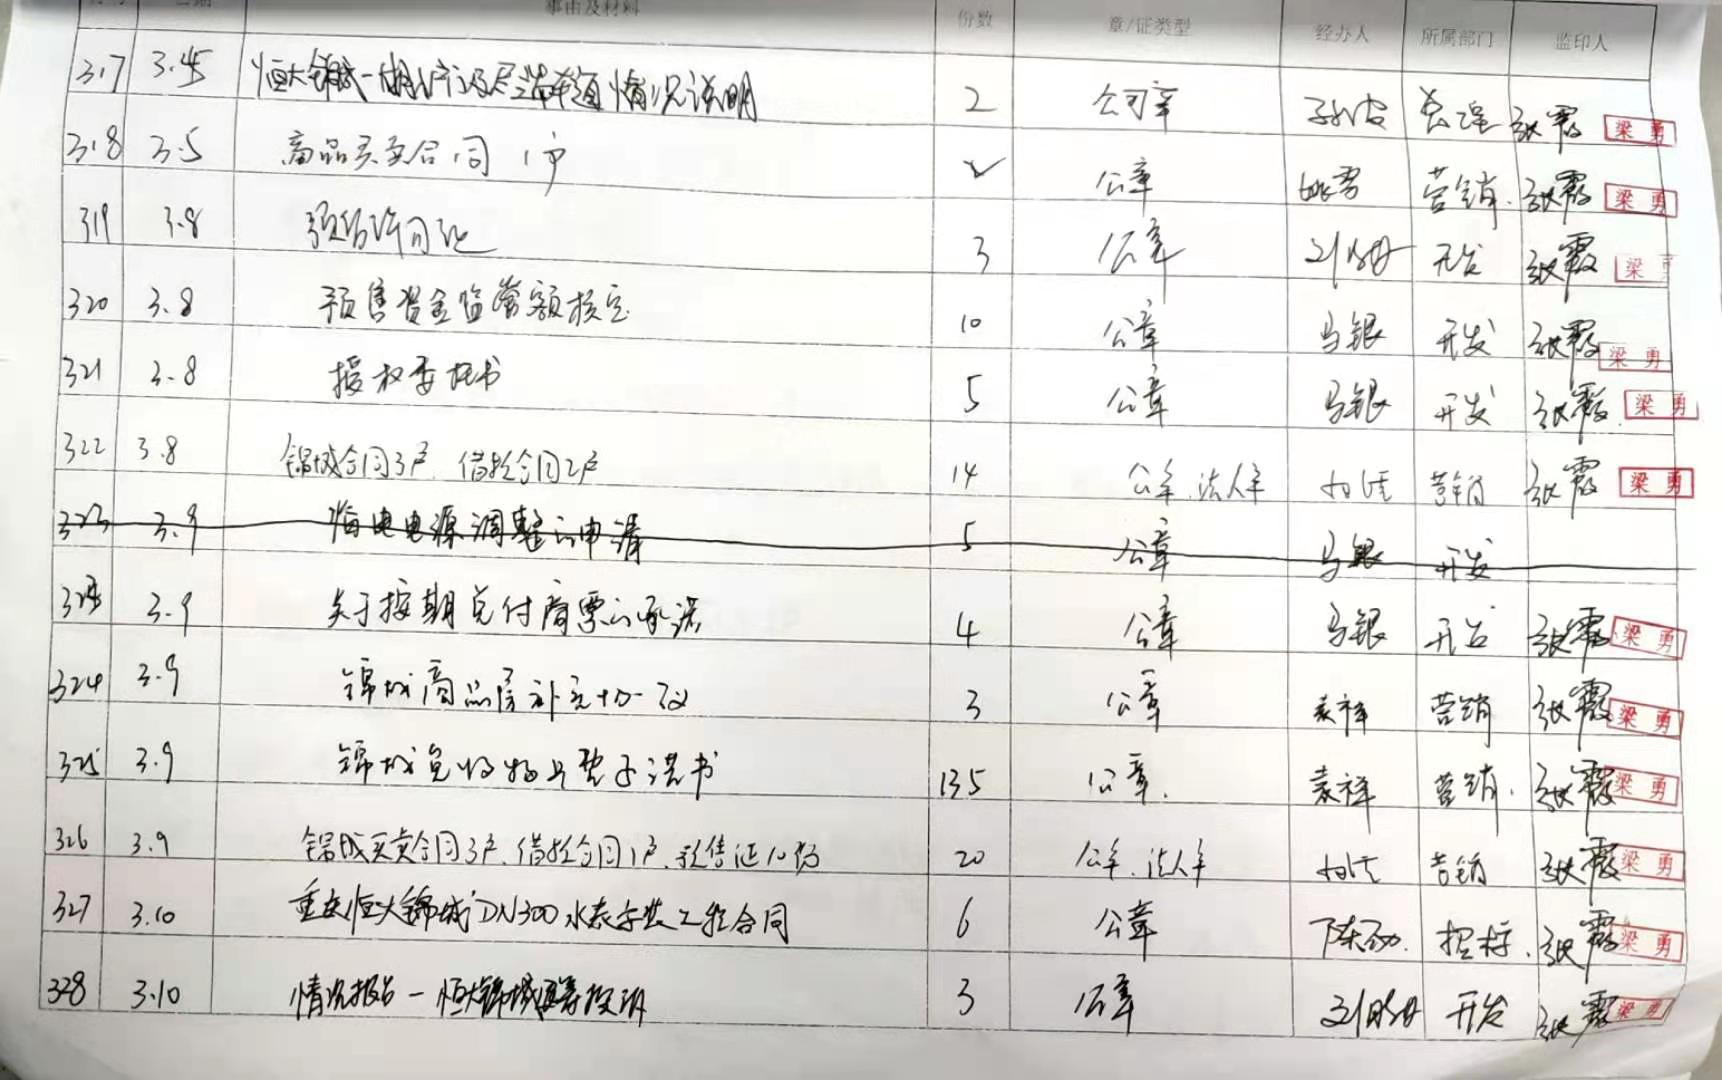 事由及材料 份数 章/证类型 经办人 所属部门 监印人
317 3.45 恒大锦城一期 情况说明 2 公司章 张霞 梁勇
318 3.5 商品买卖合同 1户 公章 营销 张霞 梁勇
319 3.8 预售许可证 3 公章 开发 张霞 梁
320 3.8 预售资金监管额核定 10 公章 马银 开发 张霞 梁勇
321 3.8 授权委托书 5 公章 马银 开发 张霞 梁勇
322 3.8 锦城合同3户、借款合同2户 14 公章、法人章 营销 张霞 梁勇
323 3.9 临电电源调整的申请 5 公章 马银 开发
3.9 关于按期兑付商票的承诺 4 公章 马银 开发 张霞 梁勇
324 3.9 锦城商品房补充协议 3 公章 袁祥 营销 张霞 梁勇
325 3.9 锦城 书 135 公章 袁祥 营销 张霞 梁勇
326 3.9 锦城买卖合同3户、借款合同1户、预售证10份 20 公章、法人章 营销 张霞 梁勇
327 3.10 重庆恒大锦城DN300水表安装工程合同 6 公章 招标 张霞 梁勇
328 3.10 情况报告一恒大锦城 3 公章 开发 张霞 梁勇